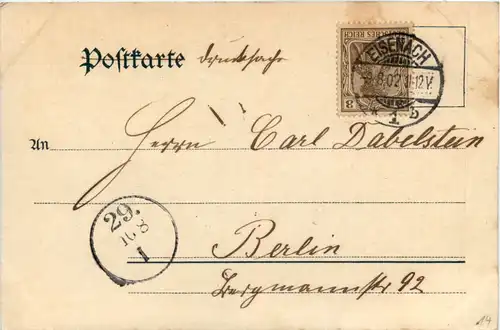 Postkarte Drucksache
DEUTSCHES REICH
3
EISENACH
9.8.02 11-12V.
* 1 b
An Herrn Carl Dabelstein
29.
10 8
I
Berlin
Bergmannstr 92
14